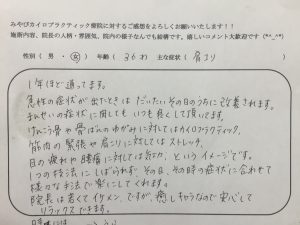 みやびカイロプラクティック療院に対するご感想をよろしくお願いいたします!!
施術内容、院長の人柄・雰囲気、院内の様子なんでも結構です。嬉しいコメント大歓迎です (*^_^*)
性別 ( 男 ・ 女 ) 年齢 ( 36才 ) 主な症状 ( 肩こり
1年ほど通ってます。
急性の症状が出たときは だいたい その日のうちに改善されます。
まんせいの症状に関しても いつも良くして頂いてます。
けんこう骨や骨ばんのゆがみに対してはカイロプラクティック、
筋肉の緊張や肩こりに対してはストレッチ、
目の疲れや腰痛に対しては、というイメージです。
1つの療法にしばられず、その日、その時の症状に合わせて
様々な手法で楽にしてくれます。
院長は若くてイケメン、ですが、癒しキャラなので安心して
リラックスできます。